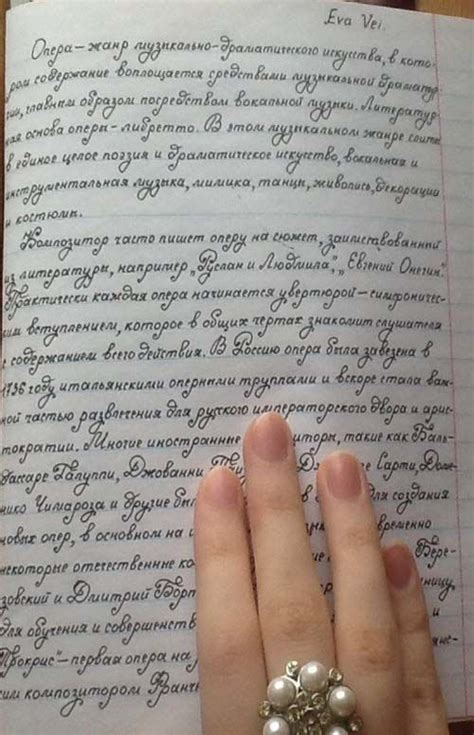 Eva Vei.
Опера – жанр музыкально-драматического искусства, в кото-
ром содержание воплощается средствами музыкальной драматур
гии, главным образом посредством вокальной музыки. Литератур
ная основа оперы – либретто. В этом музыкальном жанре слиты
в единое целое поэзия и драматическое искусство, вокальная и
инструментальная музыка, мимика, танцы, живопись, декорации
и костюмы.
Композитор часто пишет оперу на сюжет, заимствованный
из литературы, например „Руслан и Людмила", „Евгений Онегин".
Практически каждая опера начинается увертюрой – симфоничес-
ким вступлением, которое в общих чертах знакомит слушателя
с содержанием всего действия. В Россию опера была завезена в
1736 году итальянскими оперными труппами и вскоре стала важ-
ной частью развлечения для русского императорского двора и арис-
тократии. Многие иностранные такие как Баль-
дассаре Галуппи, Джованни Сарти, Доме-
нико Чимароза и другие для создания
новых опер, в основном на
некоторые отечественные Бере-
зовский и Дмитрий
для обучения и
Прокрис" – первая опера на
ким композитором